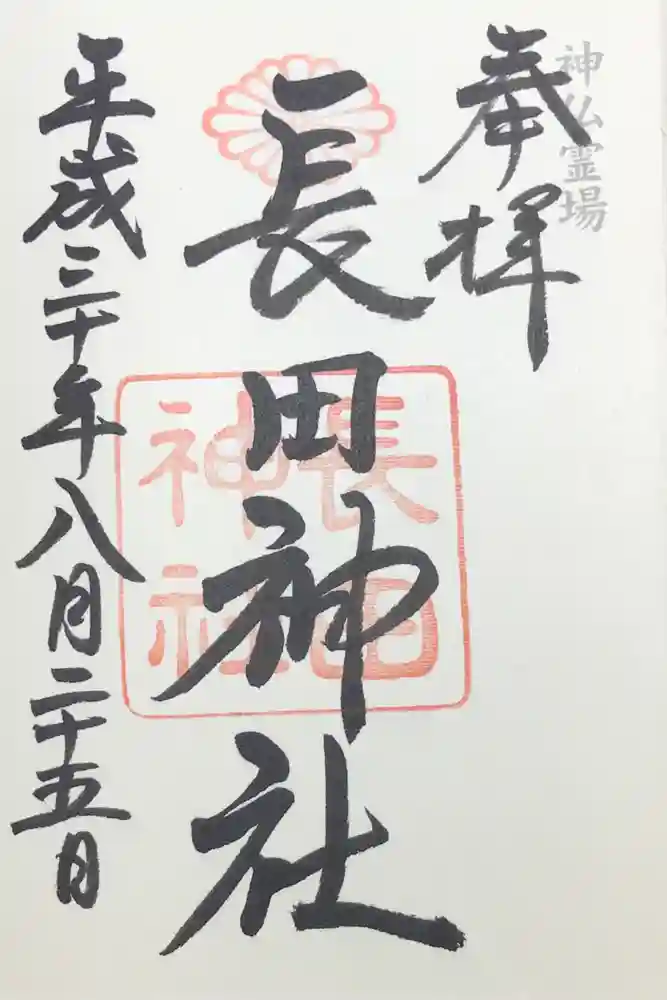 神仏霊場
奉拝
長田神社
長田
神社
平成三十年八月二十五日